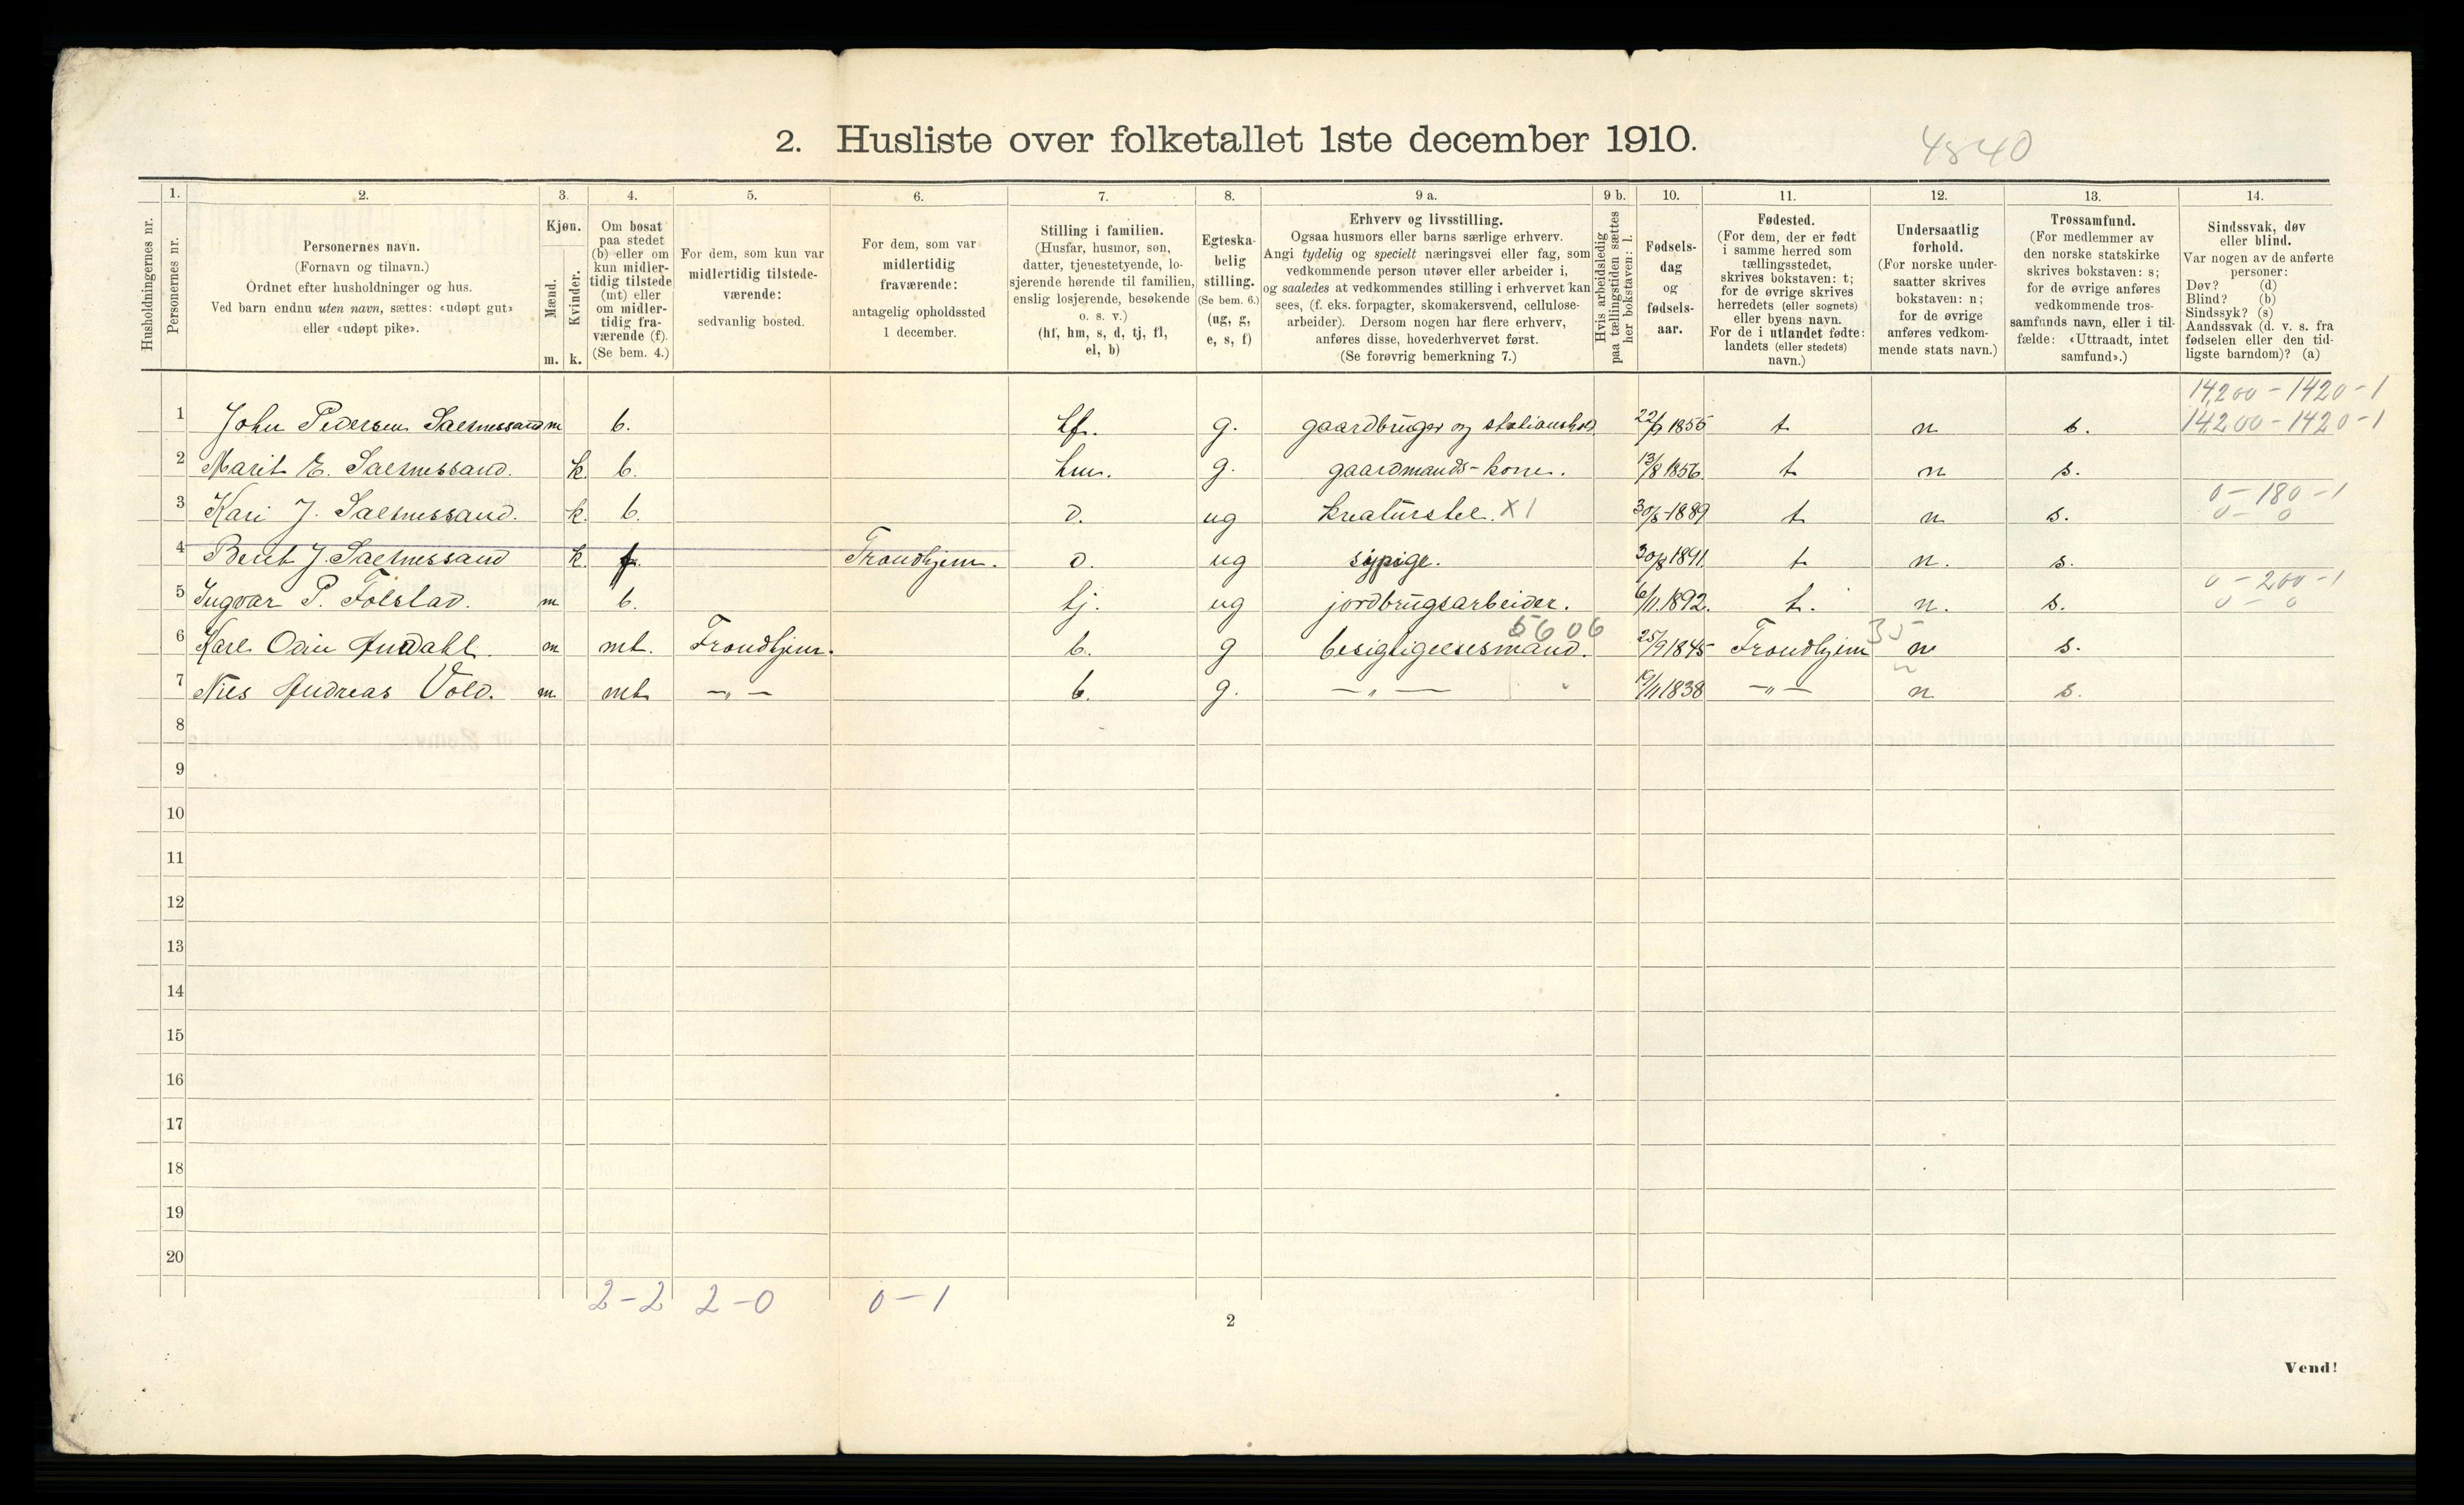 2. Husliste over folketallet 1ste december 1910.
4840
1. 2. 3. 4. 5. 6. 7. 8. 9 a. 9 b. 10. 11. 12. 13. 14.
Husholdningernes nr.
Personernes nr.
Personernes navn.
(Fornavn og tilnavn.)
Ordnet efter husholdninger og hus.
Ved barn endnu uten navn, sættes: «udøpt gut»
eller «udøpt pike».
Kjøn.
Mænd.
Kvinder.
m. k.
Om bosat
paa stedet
(b) eller om
kun midler-
tidig tilstede
(mt) eller
om midler-
tidig fra-
værende (f).
(Se bem. 4.)
For dem, som kun var
midlertidig tilstede-
værende:
sedvanlig bosted.
For dem, som var
midlertidig
fraværende:
antagelig opholdssted
1 december.
Stilling i familien.
(Husfar, husmor, søn,
datter, tjenestetyende, lo-
sjerende hørende til familien,
enslig losjerende, besøkende
o. s. v.)
(hf, hm, s, d, tj, fl,
el, b)
Egteska-
belig
stilling.
(Se bem. 6.)
(ug, g,
e, s, f)
Erhverv og livsstilling.
Ogsaa husmors eller barns særlige erhverv.
Angi tydelig og specielt næringsvei eller fag, som
vedkommende person utøver eller arbeider i,
og saaledes at vedkommendes stilling i erhvervet kan
sees, (f. eks. forpagter, skomakersvend, cellulose-
arbeider). Dersom nogen har flere erhverv,
anføres disse, hovederhvervet først.
(Se forøvrig bemerkning 7.)
Hvis arbeidsledig
paa tællingstiden sættes
her bokstaven: l.
Fødsels-
dag
og
fødsels-
aar.
Fødested.
(For dem, der er født
i samme herred som
tællingsstedet,
skrives bokstaven: t;
for de øvrige skrives
herredets (eller sognets)
eller byens navn.
For de i utlandet fødte:
landets (eller stedets)
navn.)
Undersaatlig
forhold.
(For norske under-
saatter skrives
bokstaven: n;
for de øvrige
anføres vedkom-
mende stats navn.)
Trossamfund.
(For medlemmer av
den norske statskirke
skrives bokstaven: s;
for de øvrige anføres
vedkommende tros-
samfunds navn, eller i til-
fælde: «Uttraadt, intet
samfund».)
Sindssvak, døv
eller blind.
Var nogen av de anførte
personer:
Døv? (d)
Blind? (b)
Sindssyk? (s)
Aandssvak (d. v. s. fra
fødselen eller den tid-
ligste barndom)? (a)
14,200 - 1420 - 1
1 John Pedersen Saltnessand m b. hf. g. gaardbruger og stationshol. 1855 t n s. 14,200 - 1420 - 1
2 Marit E. Saltnessand. k. b. hm. g. gaardmands-kone. 13/8 1856 t n s.
0 - 180 - 1
3 Kari J. Saltnessand. k. b. d. ug kreaturstel. X 1 1889 t n s. 0 - 0
4 Berit J. Saltnessand k. f. Trondhjem. d. ug sypige. 30/8 1891. t n. s.
0 - 200 - 1
5 Ingvar P. Folstad. m. b. tj. ug jordbrugsarbeider. 6/11. 1892. t. n. s. 0 - 0
5606 35
6 Karl Andahl. m mt. Trondhjem. b. g besigtigelsesmand. 25/9 1845 Trondhjem n s.
7 Nils Andreas Vold. m. mt -„- b. g. -„- 1838 -„- n s.
8
9
10
11
12
13
14
15
16
17
18
19
20
2-2 2-0 0-1
2
Vend!